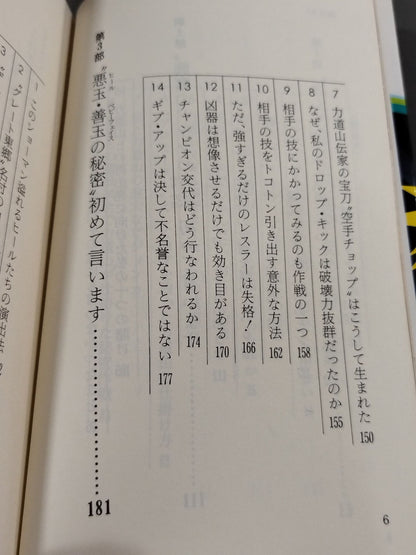 7 力道山伝家の宝刀〝空手チョップ〟はこうして生まれた 150
8 なぜ、私のドロップ・キックは破壊力抜群だったのか 155
9 相手の技にかかってみるのも作戦の一つ 158
10 相手の技をトコトン引き出す意外な方法 162
11 ただ、強すぎるだけのレスラーは失格! 166
12 凶器は想像させるだけでも効き目がある 170
13 チャンピオン交代はどう行なわれるか 174
14 ギブ・アップは決して不名誉なことではない 177
第3部 〝悪玉・善玉の秘密〟初めて言います 181
ヒール ベビーフェイス
1 このショーマン溢れるヒールたちの演出法
2 グレート東郷
6